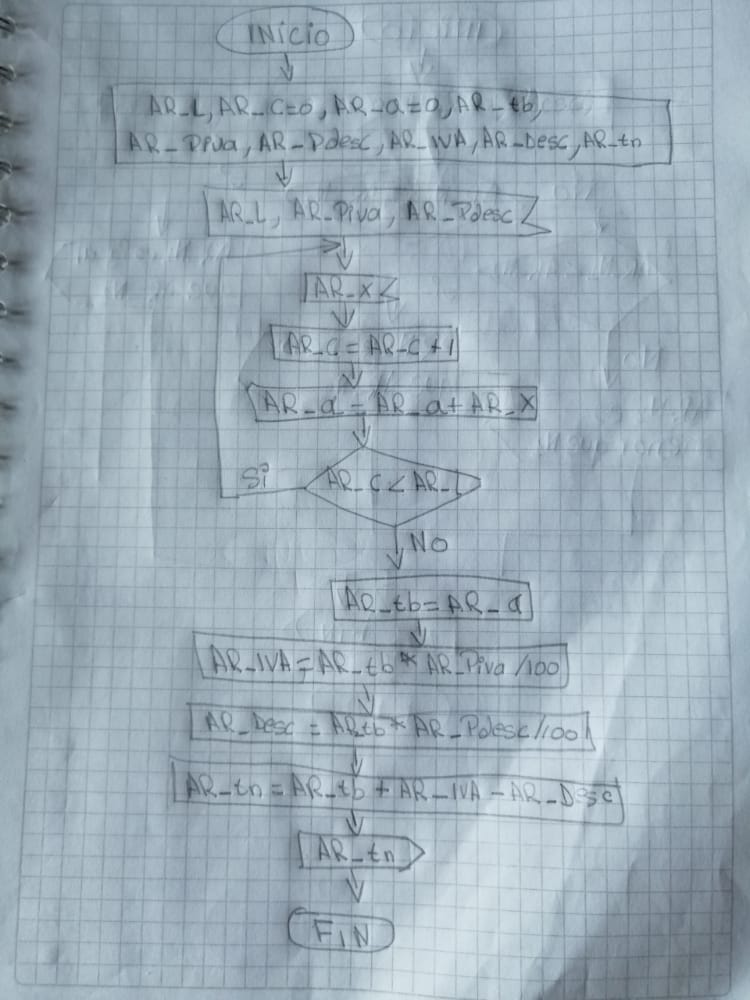 INICIO
AR_L, AR_C=0, AR_a=0, AR_tb,
AR_Piva, AR_Pdesc, AR_IVA, AR_Desc, AR_tn
AR_L, AR_Piva, AR_Pdesc
AR_X
AR_C = AR_C + 1
AR_a = AR_a + AR_X
Si
AR_C < AR_L
NO
AR_tb = AR_a
AR_IVA = AR_tb * AR_Piva /100
AR_Desc = ARtb * AR_Pdesc/100
AR_tn = AR_tb + AR_IVA - AR_Desc
AR_tn
FIN